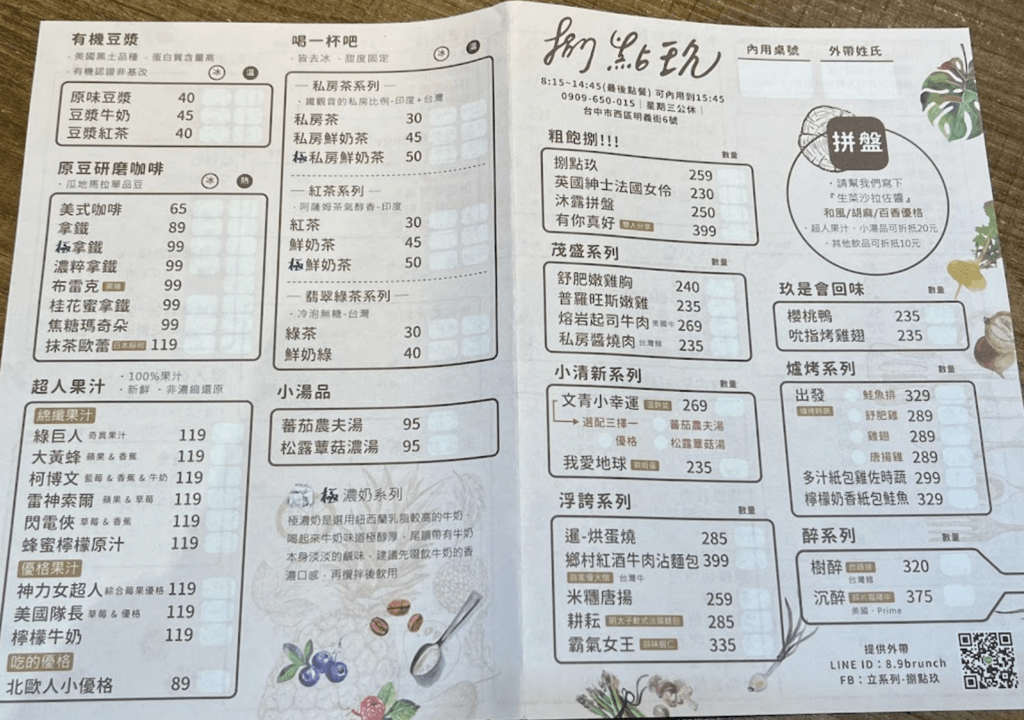 有機豆漿
·美國黑土品種 ·蛋白質含量高
·有機認證非基改
冰 溫
原味豆漿 40
豆漿牛奶 45
豆漿紅茶 40
原豆研磨咖啡
·瓜地馬拉單品豆
冰 熱
美式咖啡 65
拿鐵 89
極拿鐵 99
濃粹拿鐵 99
布雷克 99
桂花蜜拿鐵 99
焦糖瑪奇朵 99
抹茶歐蕾 119
超人果汁
·100%果汁
·新鮮 ·非濃縮還原
綿纖果汁
綠巨人 奇異果汁 119
大黃蜂 蘋果 & 香蕉 119
柯博文 藍莓 & 香蕉 & 牛奶 119
雷神索爾 蘋果 & 草莓 119
閃電俠 草莓 & 香蕉 119
蜂蜜檸檬原汁 119
優格果汁
神力女超人 綜合莓果優格 119
美國隊長 草莓 & 優格 119
檸檬牛奶 119
吃的優格
北歐人小優格 89
喝一杯吧
·皆去冰 ·甜度固定
冰 溫
— 私房茶系列 —
·鐵觀音的私房比例-印度+台灣
私房茶 30
私房鮮奶茶 45
極私房鮮奶茶 50
— 紅茶系列 —
·阿薩姆茶氣醇香-印度
紅茶 30
鮮奶茶 45
極鮮奶茶 50
— 翡翠綠茶系列 —
·冷泡無糖-台灣
綠茶 30
鮮奶綠 40
小湯品
蕃茄農夫湯 95
松露蕈菇濃湯 95
極濃奶系列
極濃奶是選用紐西蘭乳脂較高的牛奶,
喝起來牛奶味道極醇厚,尾韻帶有牛奶
本身淡淡的鹹味,建議先啜飲牛奶的香
濃口感,再攪拌後飲用
捌點玖
8:15~14:45(最後點餐) 可內用到15:45
0909-650-015|星期三公休|
台中市西區明義街6號
內用桌號 外帶姓氏
粗飽捌!!!
數量
捌點玖 259
英國紳士法國女伶 230
沐露拼盤 250
有你真好 雙人分享 399
茂盛系列
數量
舒肥嫩雞胸 240
普羅旺斯嫩雞 235
熔岩起司牛肉 美國牛 269
私房醬燒肉 台灣豬 235
小清新系列
數量
文青小幸運 269
選配三擇一
蕃茄農夫湯
優格
松露蕈菇湯
我愛地球 歐姆蛋 235
浮誇系列
數量
暹-烘蛋燒 285
鄉村紅酒牛肉沾麵包 399
台灣牛
米糰唐揚 259
耕耘 明太子軟式法國麵包 285
霸氣女王 335
拼盤
·請幫我們寫下
『生菜沙拉佐醬』
和風/胡麻/百香優格
·超人果汁、小湯品可折抵20元
·其他飲品可折抵10元
玖是會回味
數量
櫻桃鴨 235
吮指烤雞翅 235
爐烤系列
數量
出發
鮭魚排 329
舒肥雞 289
雞翅 289
唐揚雞 289
多汁紙包雞佐時蔬 299
檸檬奶香紙包鮭魚 329
醉系列
數量
樹醉 320
台灣豬
沉醉 375
美國·Prime
提供外帶
LINE ID:8.9brunch
FB:立系列-捌點玖